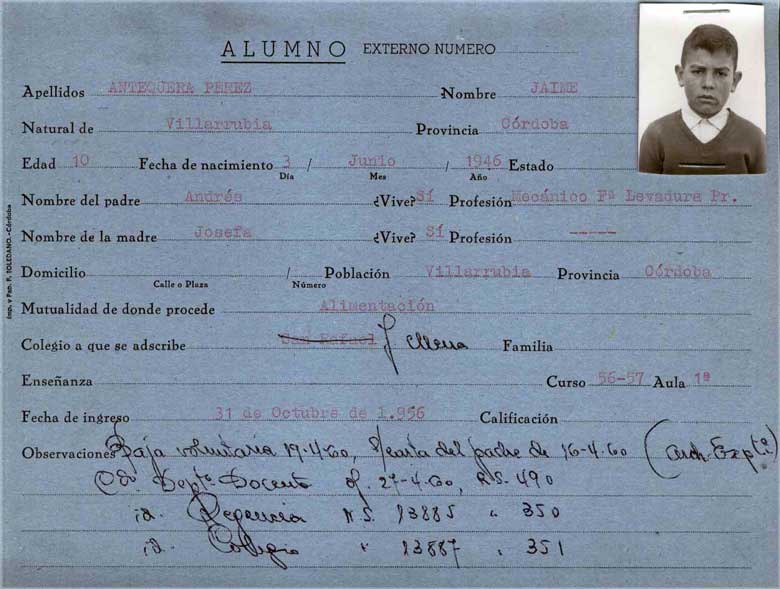 ALUMNO EXTERNO NUMERO
Apellidos ANTEQUERA PEREZ Nombre JAIME
Natural de Villarrubia Provincia Córdoba
Edad 10 Fecha de nacimiento 3 / Junio / 1946 Estado
Día Mes Año
Nombre del padre Andrés ¿Vive? Sí Profesión Mecánico Fª Levadura Pr.
Nombre de la madre Josefa ¿Vive? Sí Profesión -----
Domicilio / Población Villarrubia Provincia Córdoba
Calle o Plaza Número
Mutualidad de donde procede Alimentación
Colegio a que se adscribe San Rafael J. Mena Familia
Enseñanza Curso 56-57 Aula 1ª
Fecha de ingreso 31 de Octubre de 1.956 Calificación
Observaciones Baja voluntaria 19-4-60, s/carta del padre de 16-4-60 (Arch. Expte.)
Dept. Docente of. 27-4-60, R.S. 490
id. Regencia N.S. 13885 " 350
id. Colegio " 13887 " 351
Imp. y Pap. F. TOLEDANO.-Córdoba